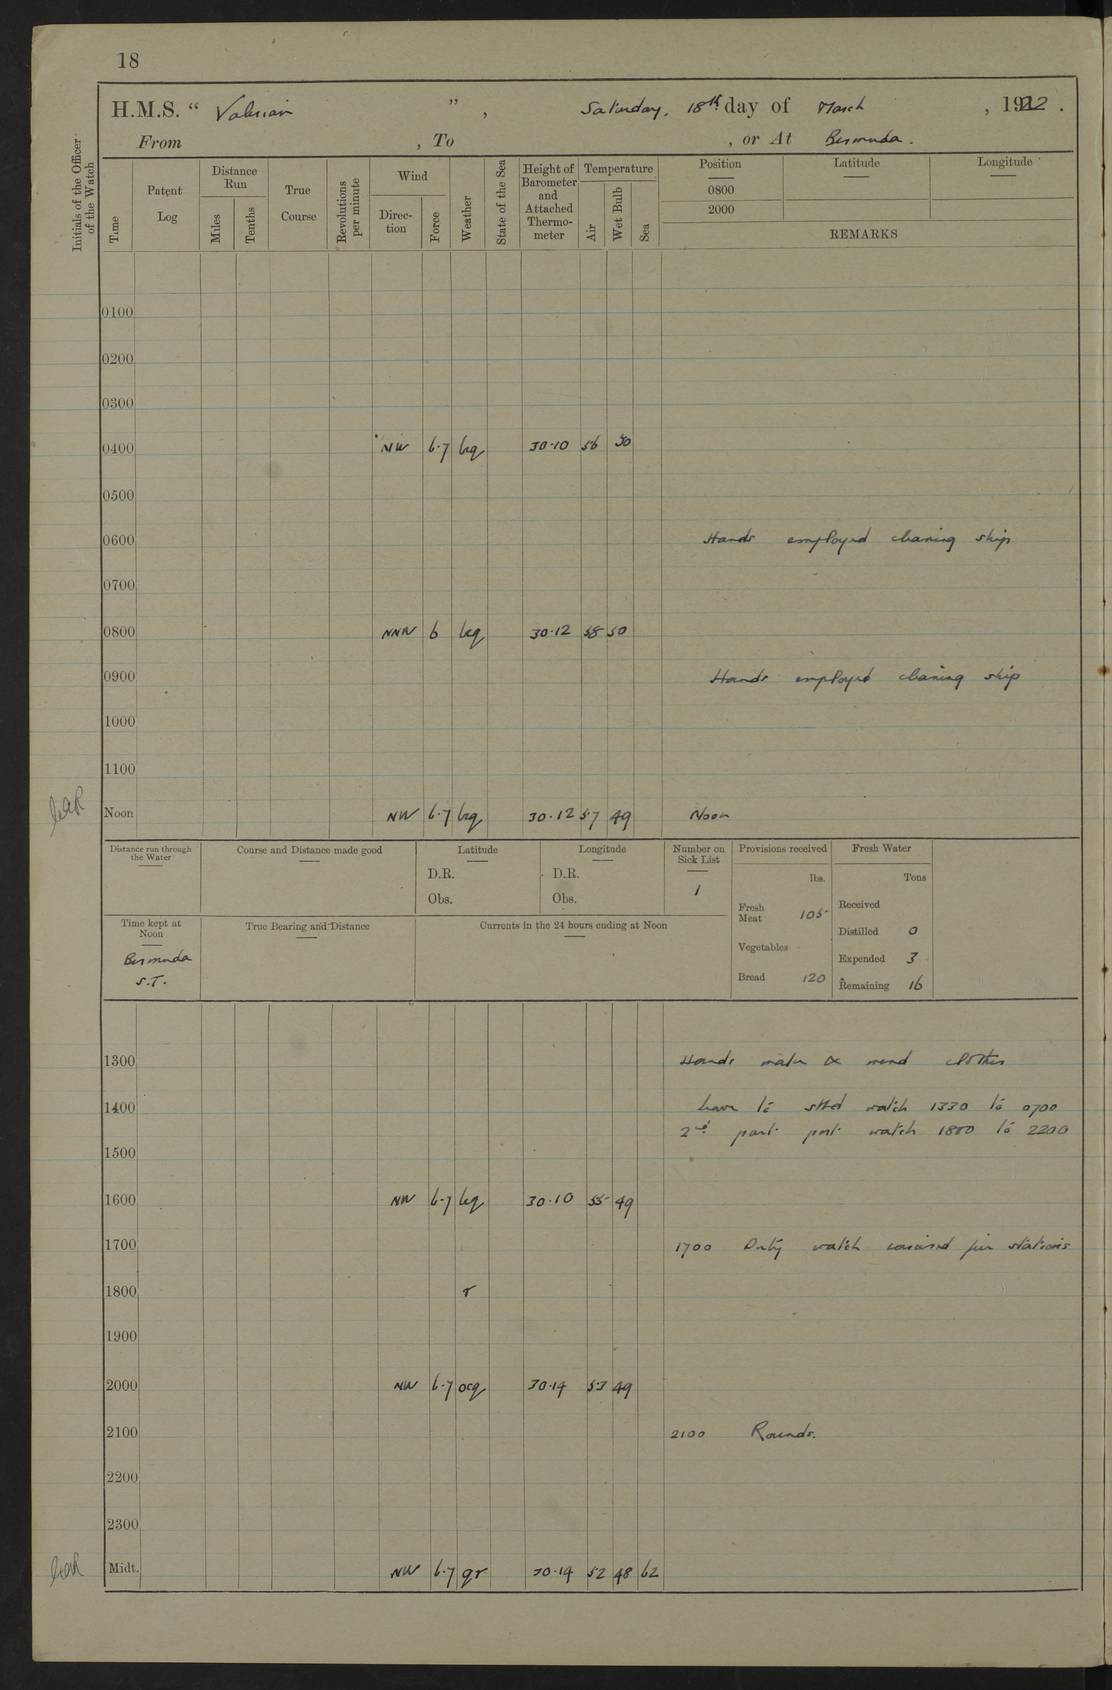 18
H.M.S. “ Valerian ”, Saturday, 18th day of March , 1922 .
From , To , or At Bermuda.
Initials of the Officer of the Watch
Time
Patent Log
Distance Run
Miles
Tenths
True Course
Revolutions per minute
Wind
Direc-tion
Force
Weather
State of the Sea
Height of Barometer and Attached Thermo-meter
Temperature
Air
Wet Bulb
Sea
Position Latitude Longitude
0800
2000
REMARKS
0100
0200
0300
0400 NW 6·7 bcq 30·10 56 50
0500
0600 Hands employed cleaning ship
0700
0800 NNW 6 bcq 30·12 58 50
0900 Hands employed cleaning ship
1000
1100
Noon NW 6·7 bcq 30·12 57 49 Noon
Distance run through the Water
Course and Distance made good
Latitude
D.R.
Obs.
Longitude
D.R.
Obs.
Number on Sick List
1
Provisions received
lbs.
Fresh Meat 105
Vegetables
Bread 120
Fresh Water
Tons
Received
Distilled 0
Expended 3
Remaining 16
Time kept at Noon
Bermuda
S.T.
True Bearing and Distance
Currents in the 24 hours ending at Noon
1300 Hands make & mend clothes
1400 Leave to stbd watch 1330 to 0700
2nd part port watch 1800 to 2200
1500
1600 NW 6-7 bcq 30·10 55 49
1700 1700 Duty watch exercised fire stations
1800 r
1900
2000 NW 6·7 ocq 30·14 53 49
2100 2100 Rounds.
2200
2300
Midt. NW 6·7 qr 30·14 52 48 62